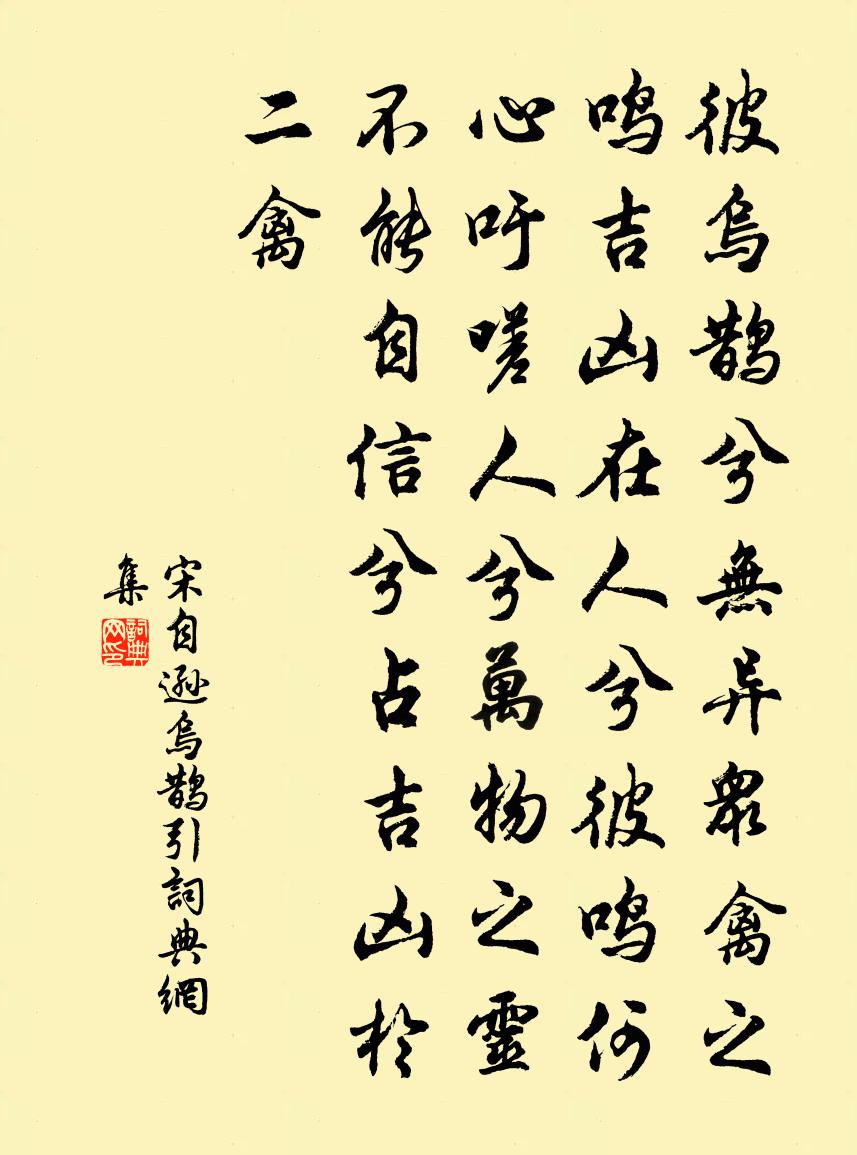 彼烏鵲兮無异眾禽之
鳴吉凶在人兮彼鳴何
心吁嗟人兮萬物之靈
不能自信兮占吉凶於
二禽
宋自遜烏鵲引詞典網
集
詞典
网印